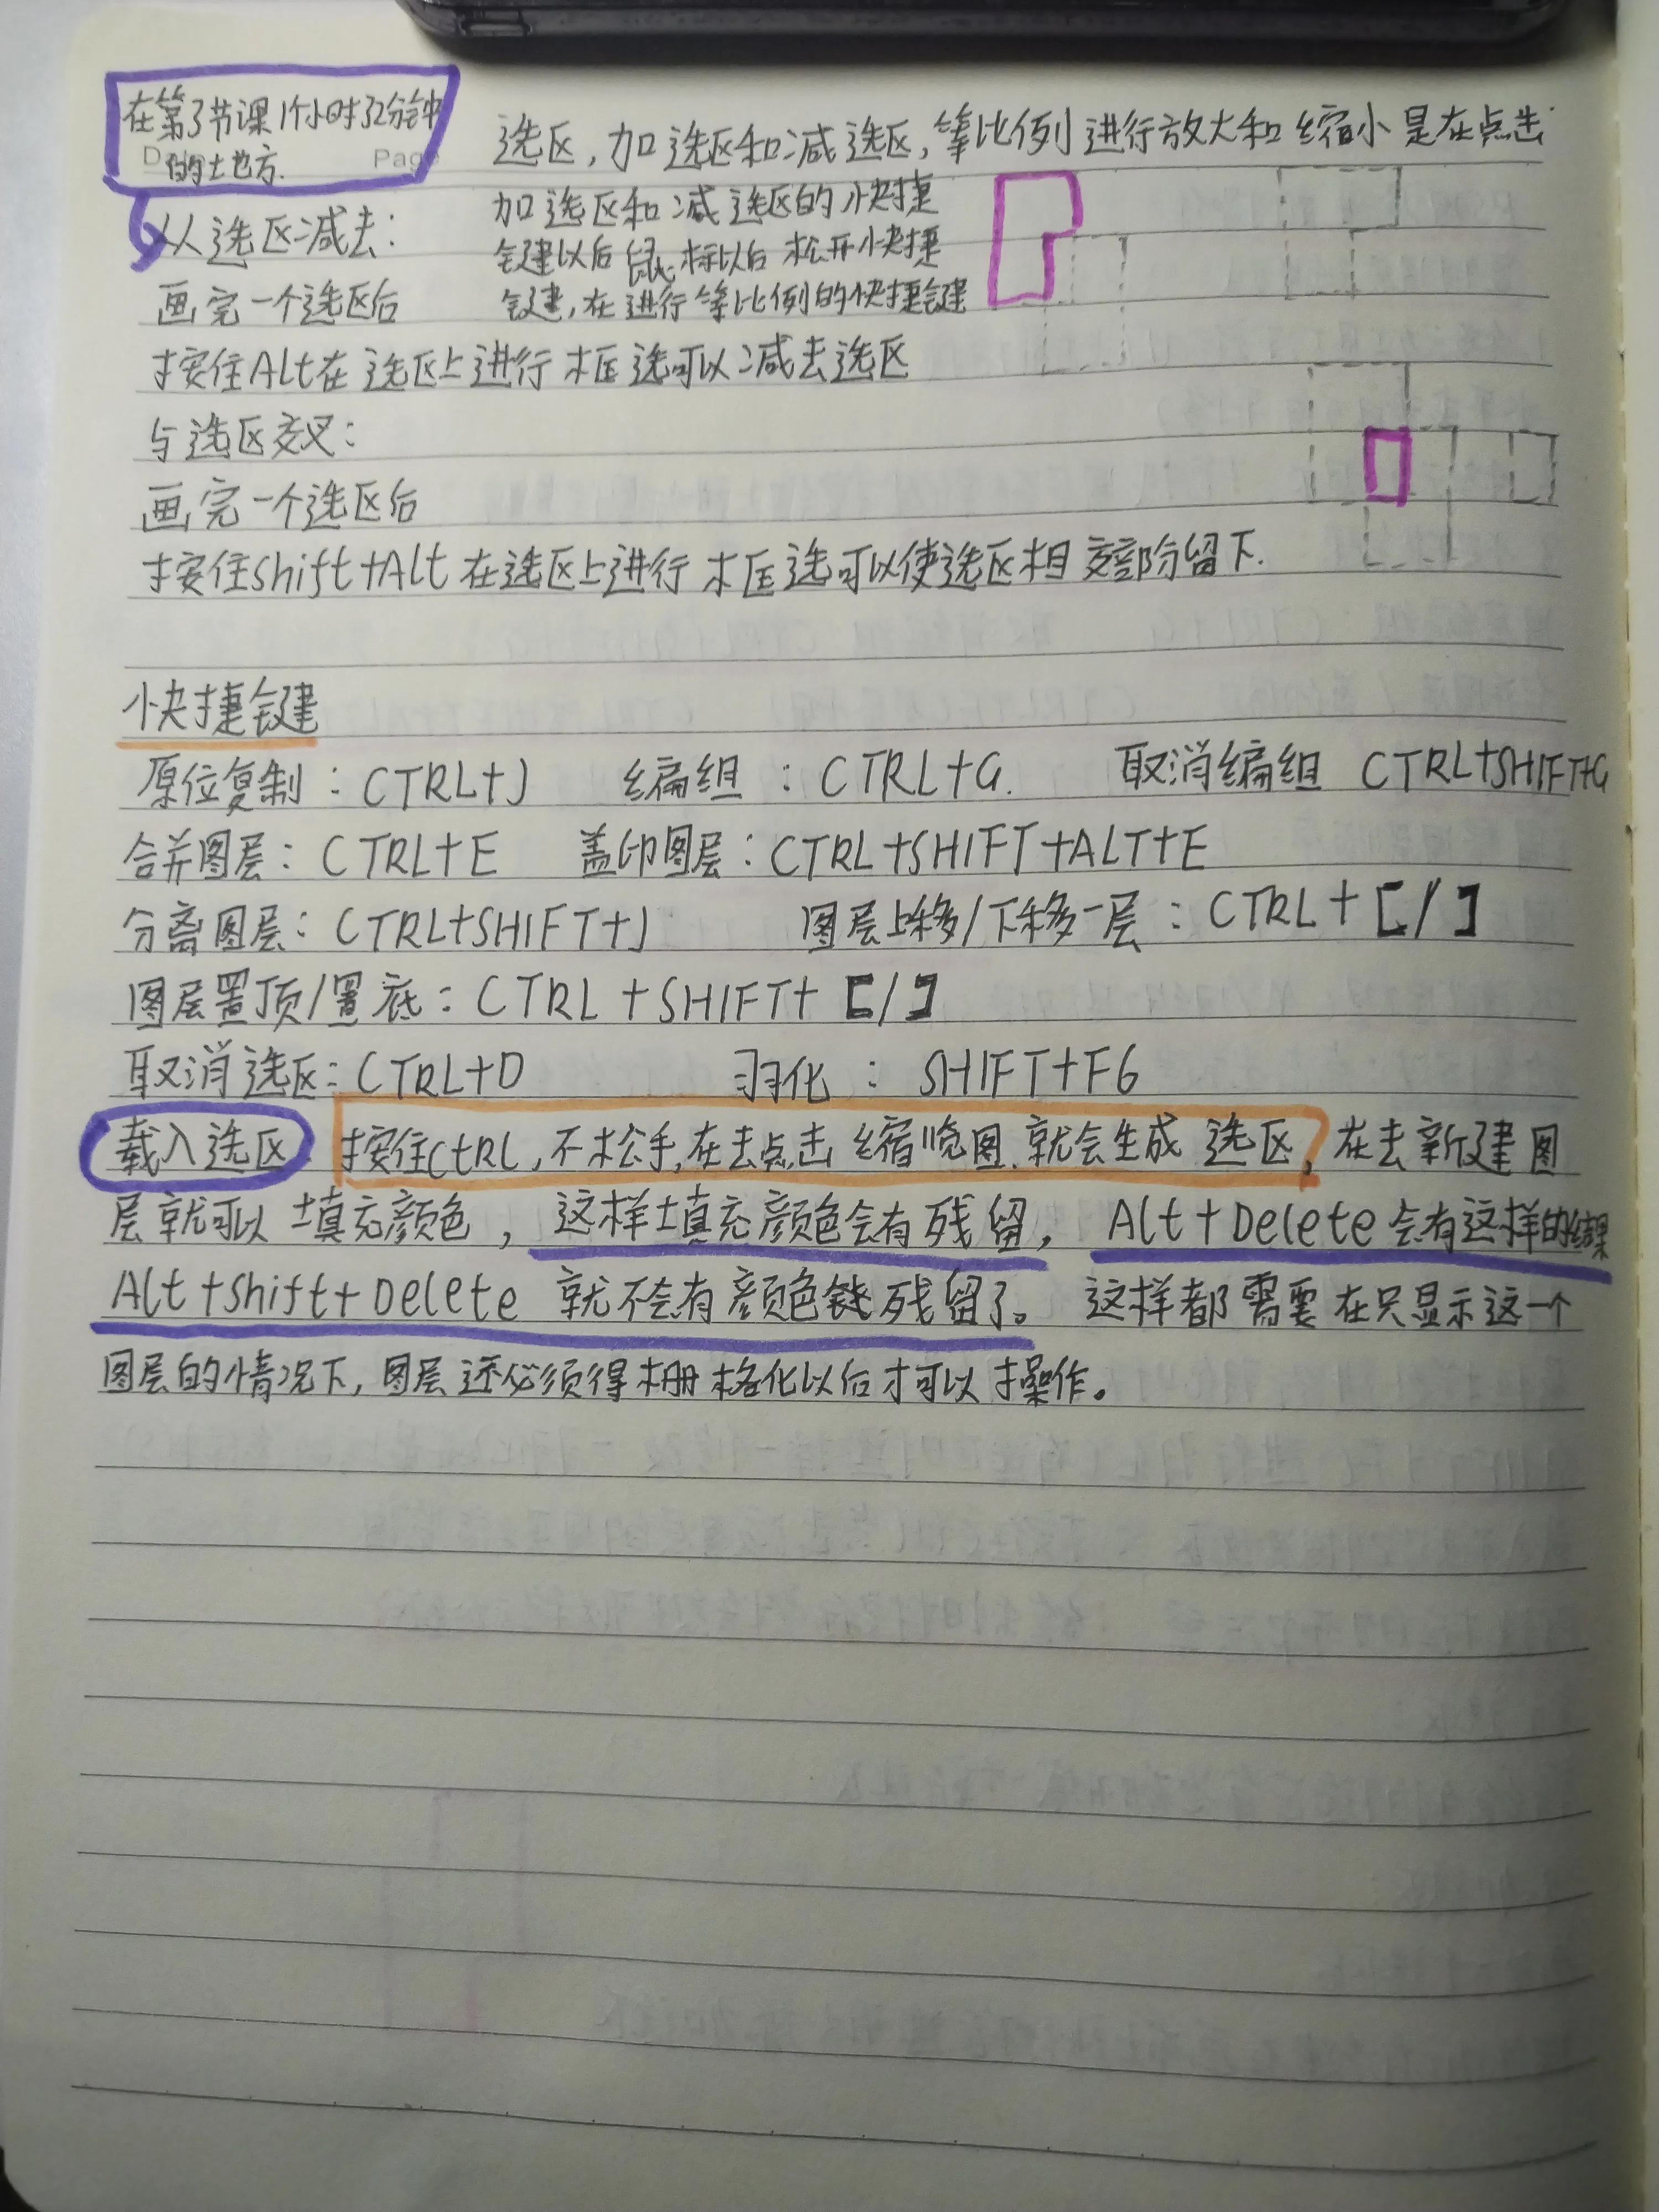 在第3节课1个小时32分钟
的土地方.
Page
选区,加选区和减选区,等比例进行放大和缩小是在点击
加选区和减选区的快捷
键以后鼠标以后松开快捷
键,在进行等比例的快捷键
从选区减去:
画完一个选区后
按住Alt在选区上进行框选可以减去选区
与选区交叉:
画完一个选区后
按住shift+Alt在选区上进行框选可以使选区相交部分留下.
快捷键
原位复制:CTRL+J 编组:CTRL+G. 取消编组 CTRL+SHIFT+G
合并图层:CTRL+E 盖印图层:CTRL+SHIFT+ALT+E
分离图层:CTRL+SHIFT+J 图层上移/下移一层:CTRL+[/]
图层置顶/置底:CTRL+SHIFT+[/]
取消选区:CTRL+D 羽化:SHIFT+F6
载入选区 按住CtRL,不松手,在去点击缩览图.就会生成选区,在去新建图
层就可以填充颜色,这样填充颜色会有残留,Alt+Delete会有这样的结果
Alt+Shift+Delete 就不会有颜色残留了。这样都需要在只显示这一个
图层的情况下,图层还必须得栅格化以后才可以操作。